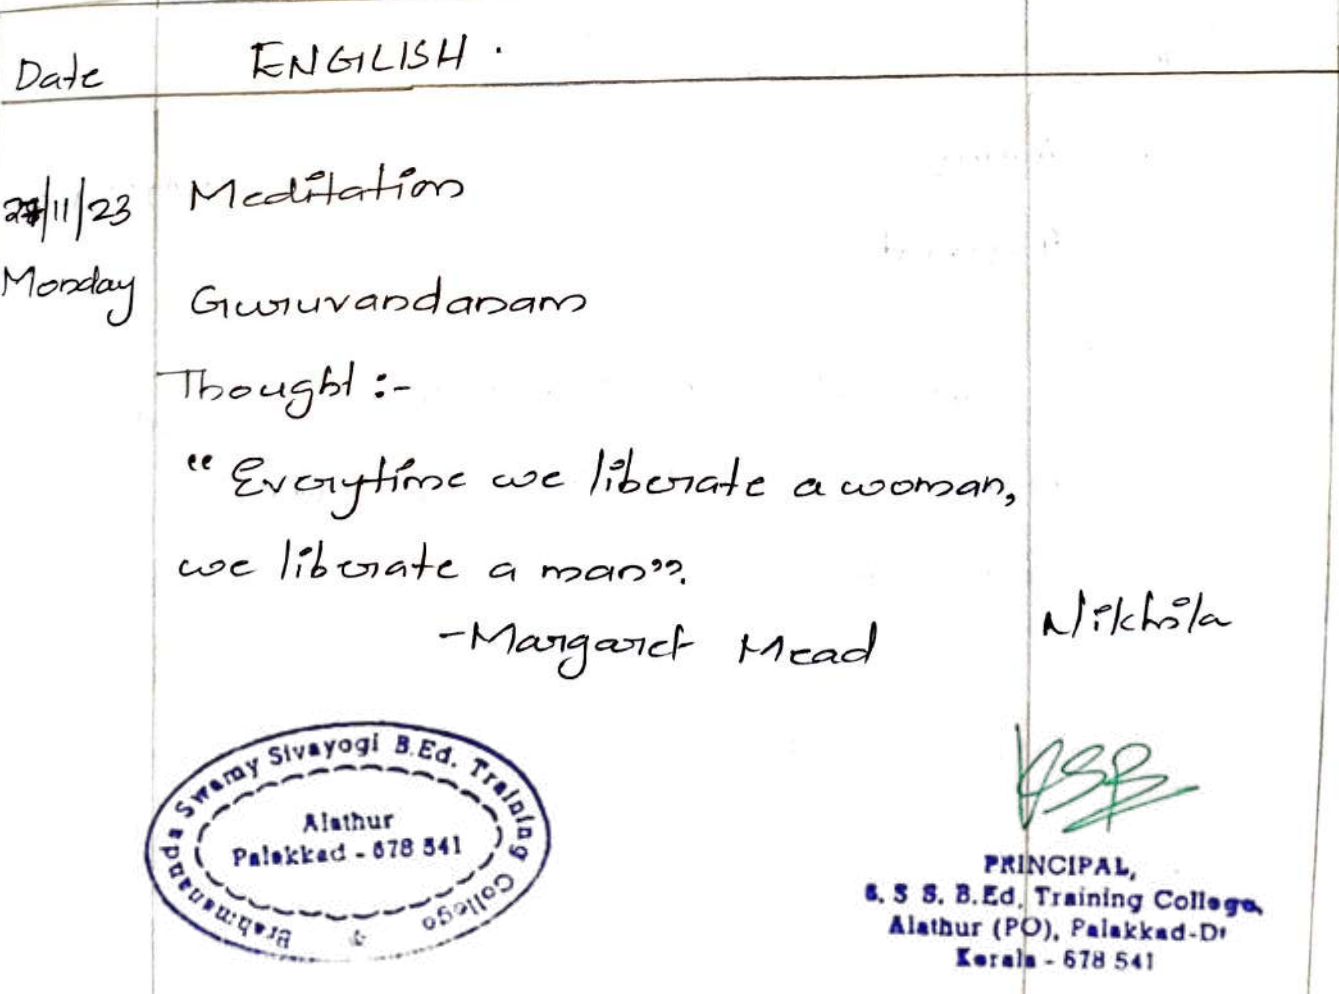 Date ENGLISH.
27/11/23 Meditation
Monday Guruvandanam
Thought :-
"Everytime we liberate a woman,
we liberate a man".
-Margaret Mead
Nikhila
Brahmananda Swamy Sivayogi B.Ed. Training College
Alathur
Palakkad - 678 541
PRINCIPAL,
B. S S. B.Ed. Training College,
Alathur (PO), Palakkad-Dt
Kerala - 678 541